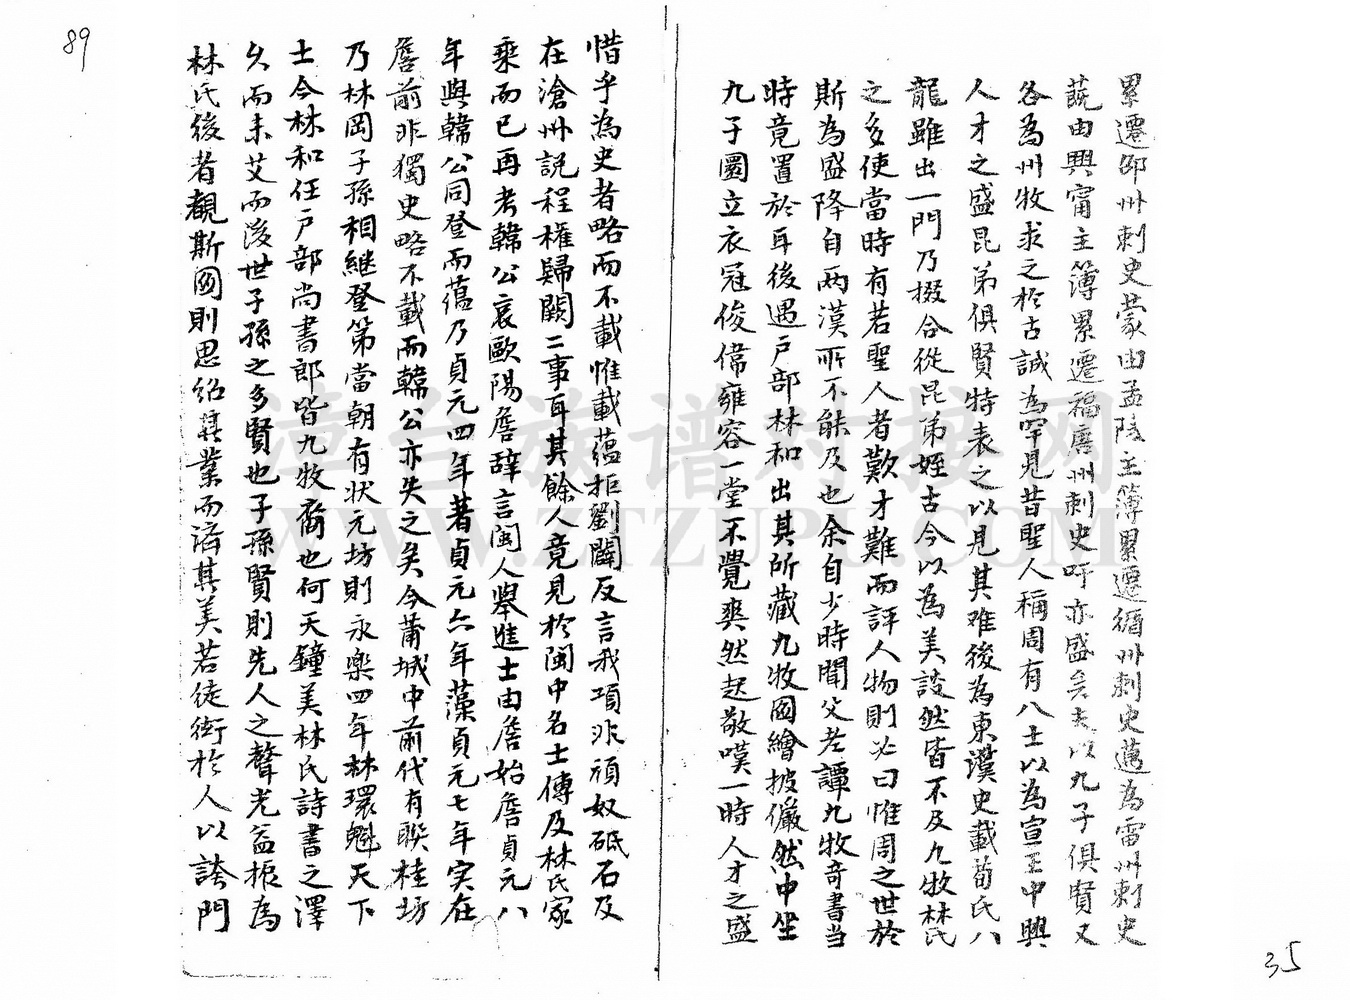 89
累遷邵州刺史蒙由孟陵主簿累遷循州刺史邁為雷州刺史
蔇由興甯主簿累遷福唐州刺史吁亦盛矣夫以九子俱賢又
各為州牧求之於古誠為罕見昔聖人稱周有八士以為宣王中興
人才之盛昆弟俱賢特表之以見其难後為東漢史載荀氏八
龍雖出一門乃掇合從昆弟姪古今以為美談然皆不及九牧林氏
之多使當時有若聖人者歎才難而評人物則必曰惟周之世於
斯為盛降自两漢所不能及也余自少時聞父老譚九牧奇書当
時竟置於耳後遇户部林和出其所藏九牧圖繪披儼然中坐
九子圜立衣冠俊偉雍容一堂不覺爽然起敬嘆一時人才之盛
惜乎為史者略而不載惟載蘊拒劉闢反言我項非頑奴砥石及
在滄州説程權歸闕二事耳其餘人竟見於閩中名士傳及林氏家
乘而已再考韓公哀歐陽詹辞言閩人舉進士由詹始詹貞元八
年與韓公同登而蘊乃貞元四年著貞元六年藻貞元七年实在
詹前非獨史略不載而韓公亦失之矣今莆城中前代有聯桂坊
乃林岡子孫相継登第當朝有状元坊則永樂四年林環魁天下
士今林和任户部尚書郎皆九牧裔也何天鐘美林氏詩書之澤
久而未艾而後世子孫之多賢也子孫賢則先人之聲光益振為
林氏後者觀斯圖則思紹其業而濟其美若徒衒於人以誇門
35
漳台族谱对接网
WWW.ZTZUPU.COM